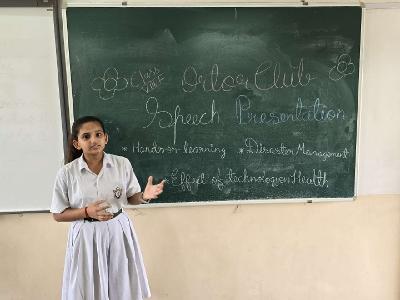 Class VIII F
Orlog Club
Speech Presentation
* Hands on learning * Disaster Management
* Effect of technology on Health